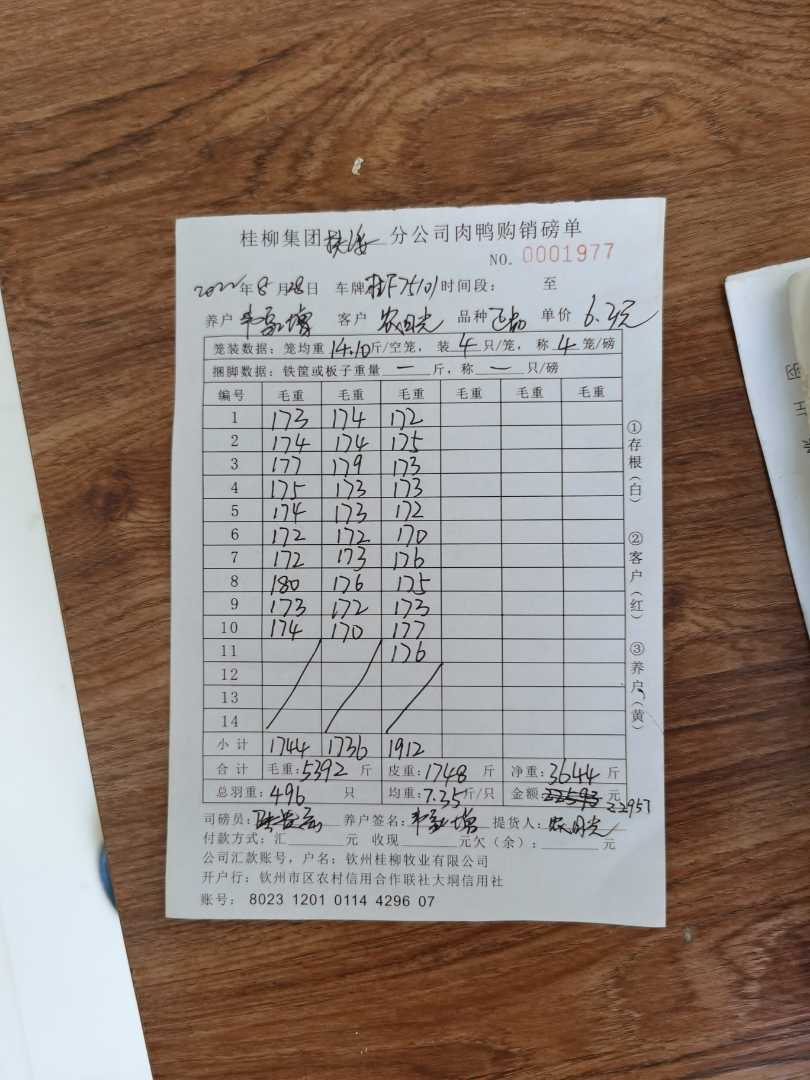 桂柳集团 钦海 分公司肉鸭购销磅单
NO. 0001977
2022年8月28日 车牌桂F75101时间段: 至
养户 客户 农日光 品种 单价 6.3元
笼装数据:笼均重14.10斤/空笼,装4只/笼,称4笼/磅
捆脚数据:铁筐或板子重量一斤,称一只/磅
编号 毛重 毛重 毛重 毛重 毛重 毛重
1 173 174 172
2 174 174 175
3 177 179 173
4 175 173 173
5 174 173 172
6 172 172 170
7 172 173 176
8 180 176 175
9 173 172 173
10 174 170 177
11 176
12
13
14
小计 1744 1736 1912
合计 毛重:5392斤 皮重:1748斤 净重:3644斤
总羽重:496只 均重:7.35斤/只 金额:22593元
22957
司磅员: 养户签名: 提货人:农日光
付款方式:汇 元 收现 元欠(余): 元
公司汇款账号,户名:钦州桂柳牧业有限公司
开户行:钦州市区农村信用合作联社大垌信用社
账号: 8023 1201 0114 4296 07
①存根(白) ②客户(红) ③养户(黄)